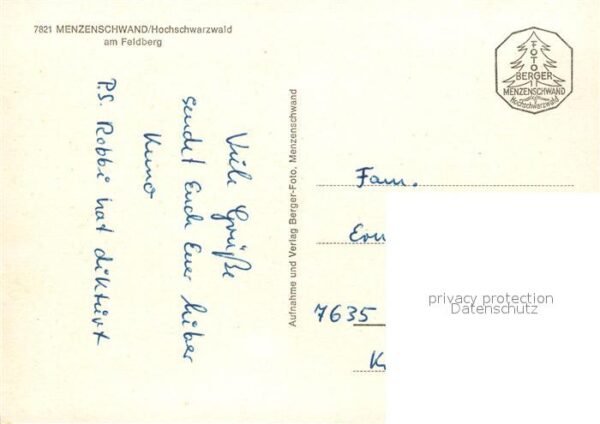 7821 MENZENSCHWAND/Hochschwarzwald
am Feldberg
Viele Grüße
sendet Euch Euer lieber
Kuno
P.S. Robbi hat diktiert
Aufnahme und Verlag Berger-Foto, Menzenschwand
FOTO
BERGER
MENZENSCHWAND
Hochschwarzwald
Fam.
7635
privacy protection
Datenschutz